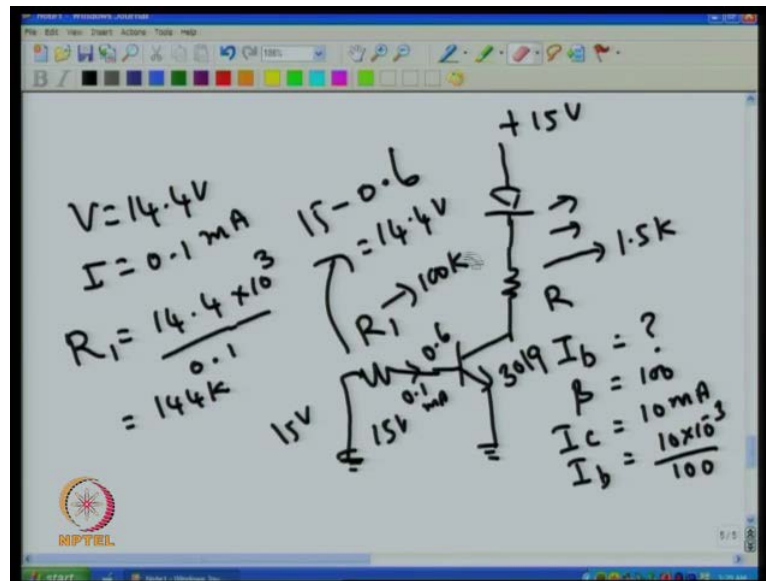 Note1 - Windows Journal
File Edit View Insert Actions Tools Help
100%
B I
+15V
V=14.4V
I=0.1 mA
R1= 14.4×10^3
0.1
= 144K
15-0.6
=14.4V
R1→100K
1.5K
R
0.6
0.1
mA
15V
15V
3019
Ib = ?
β = 100
Ic = 10mA
Ib = 10×10^-3
100
NPTEL
5/5
start
Note1 - Windows Jou...